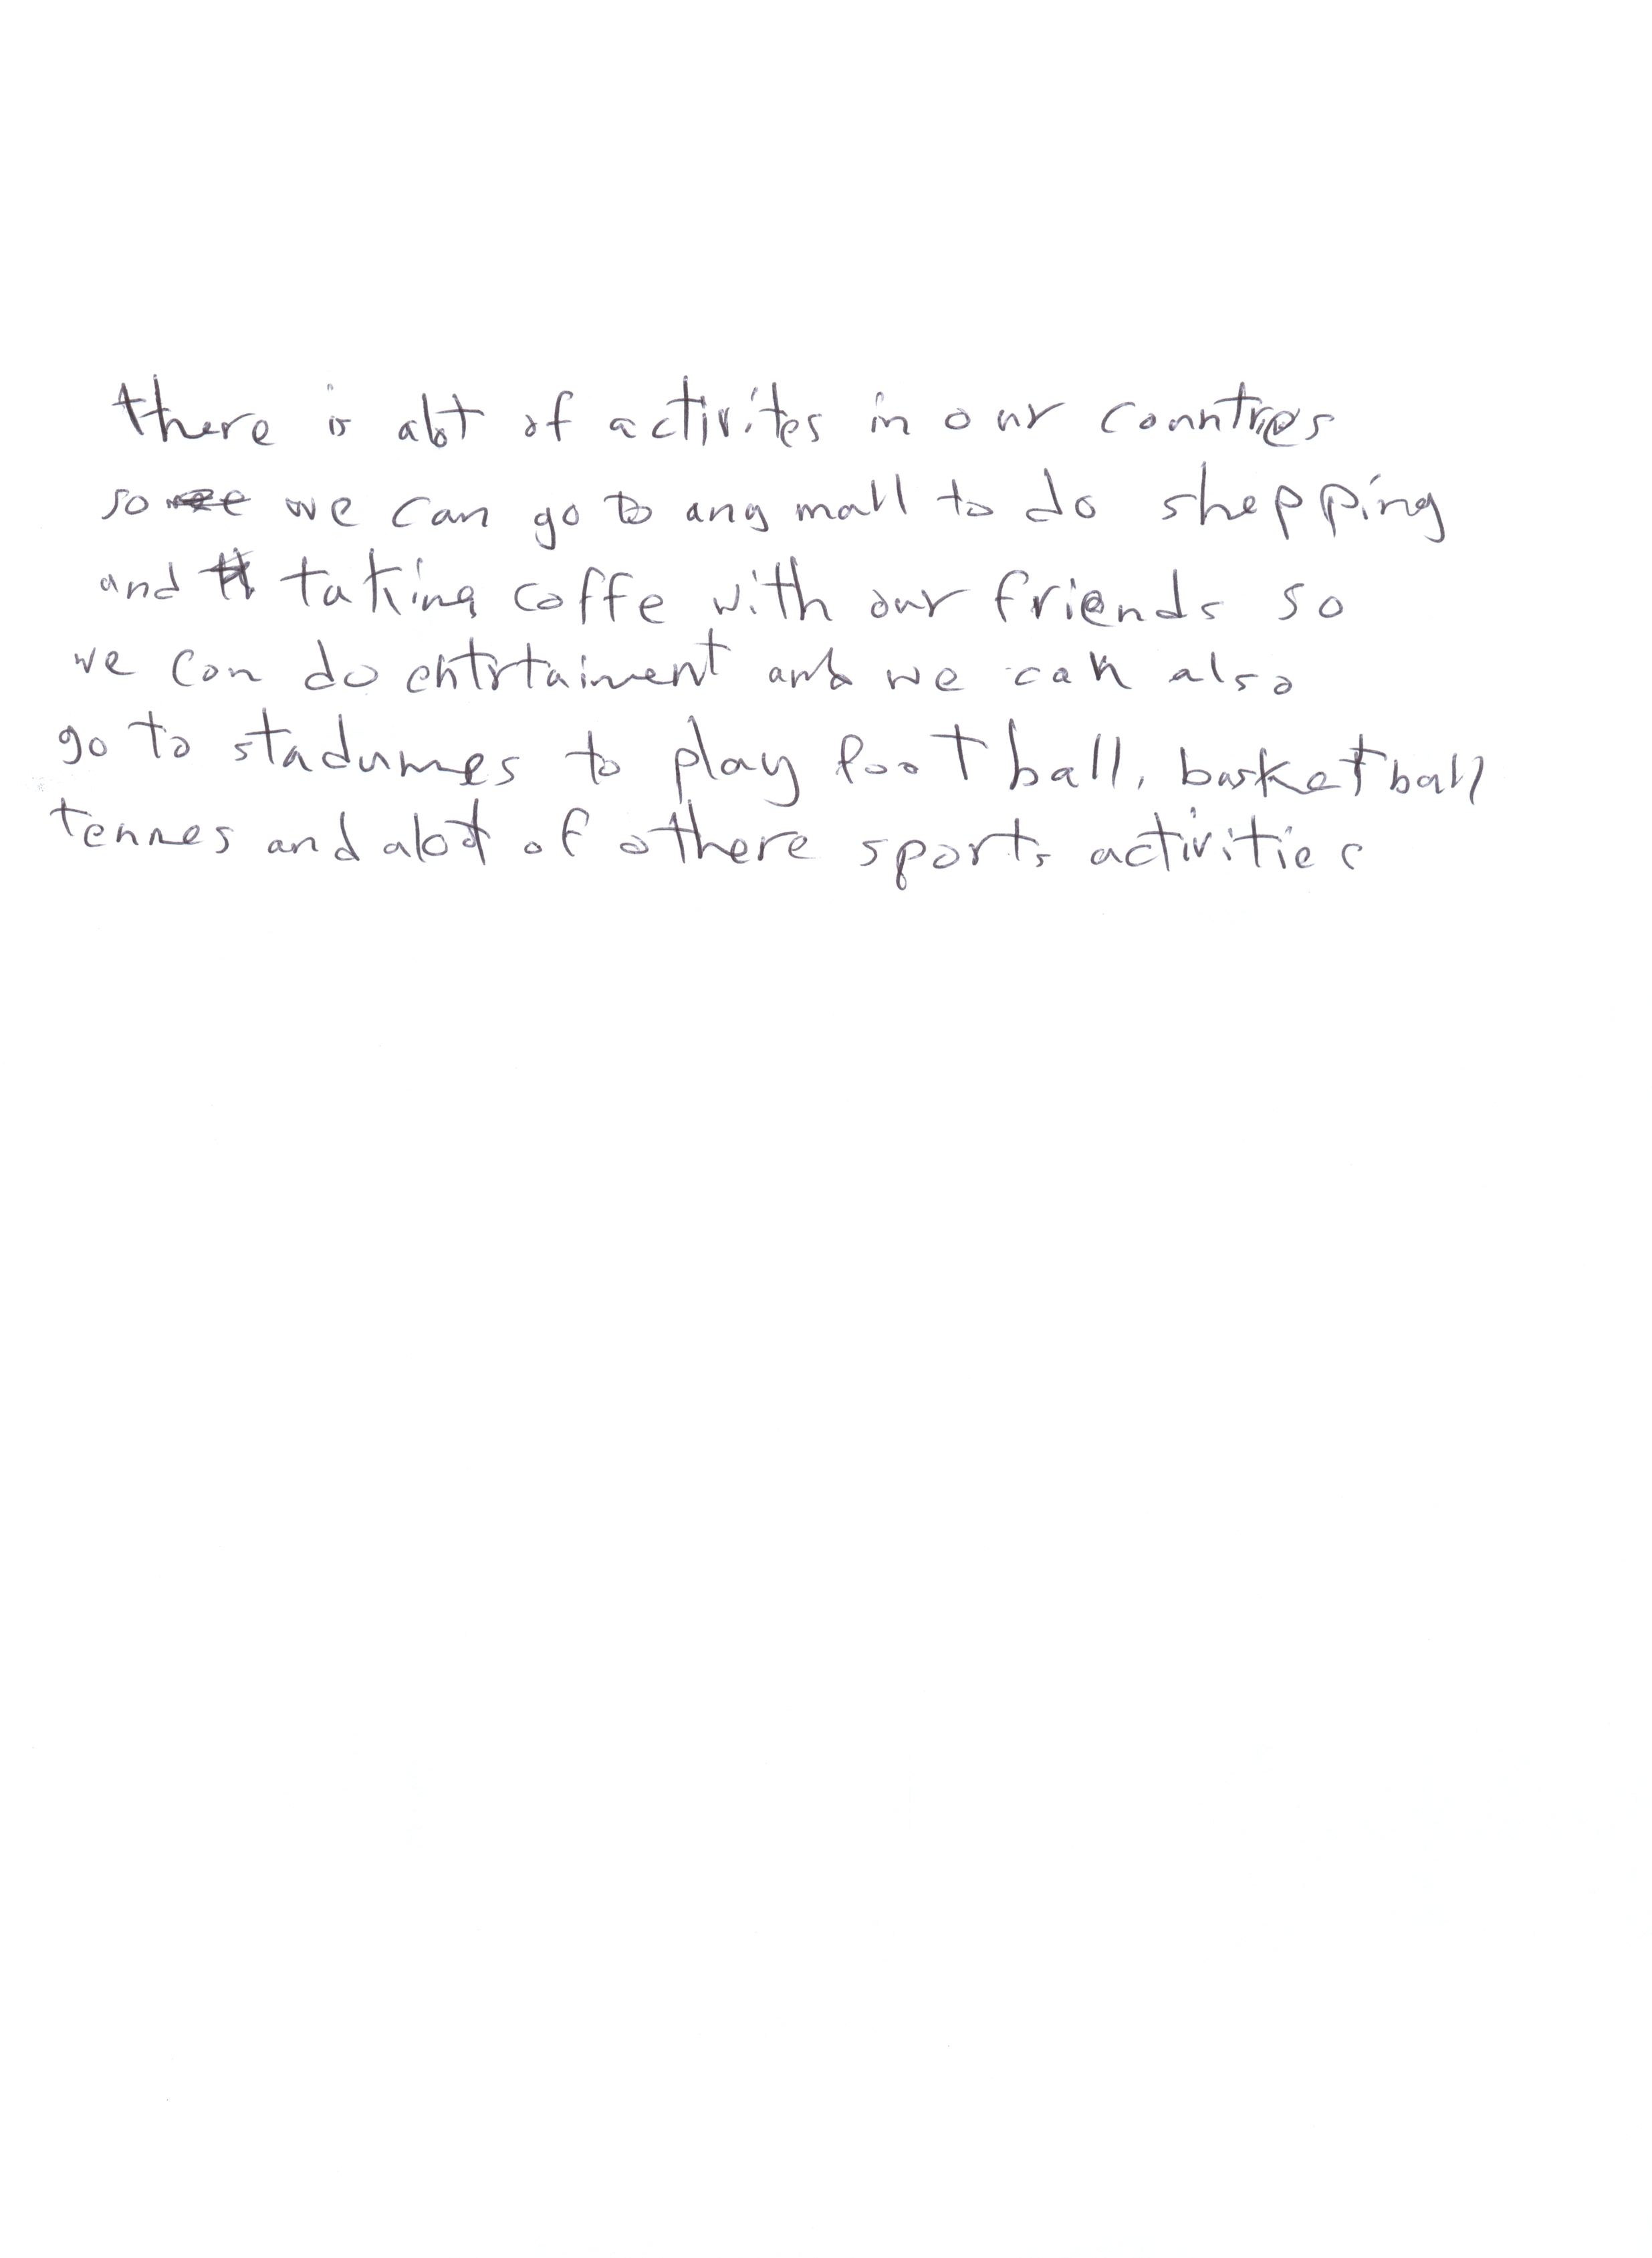 there is alot of activites in our countries
so we can go to any mall to do shopping
and taking coffe with our friends so
we can do entrtainment and we can also
go to stadumes to play football, basketball
tennes and alot of othere sports activities